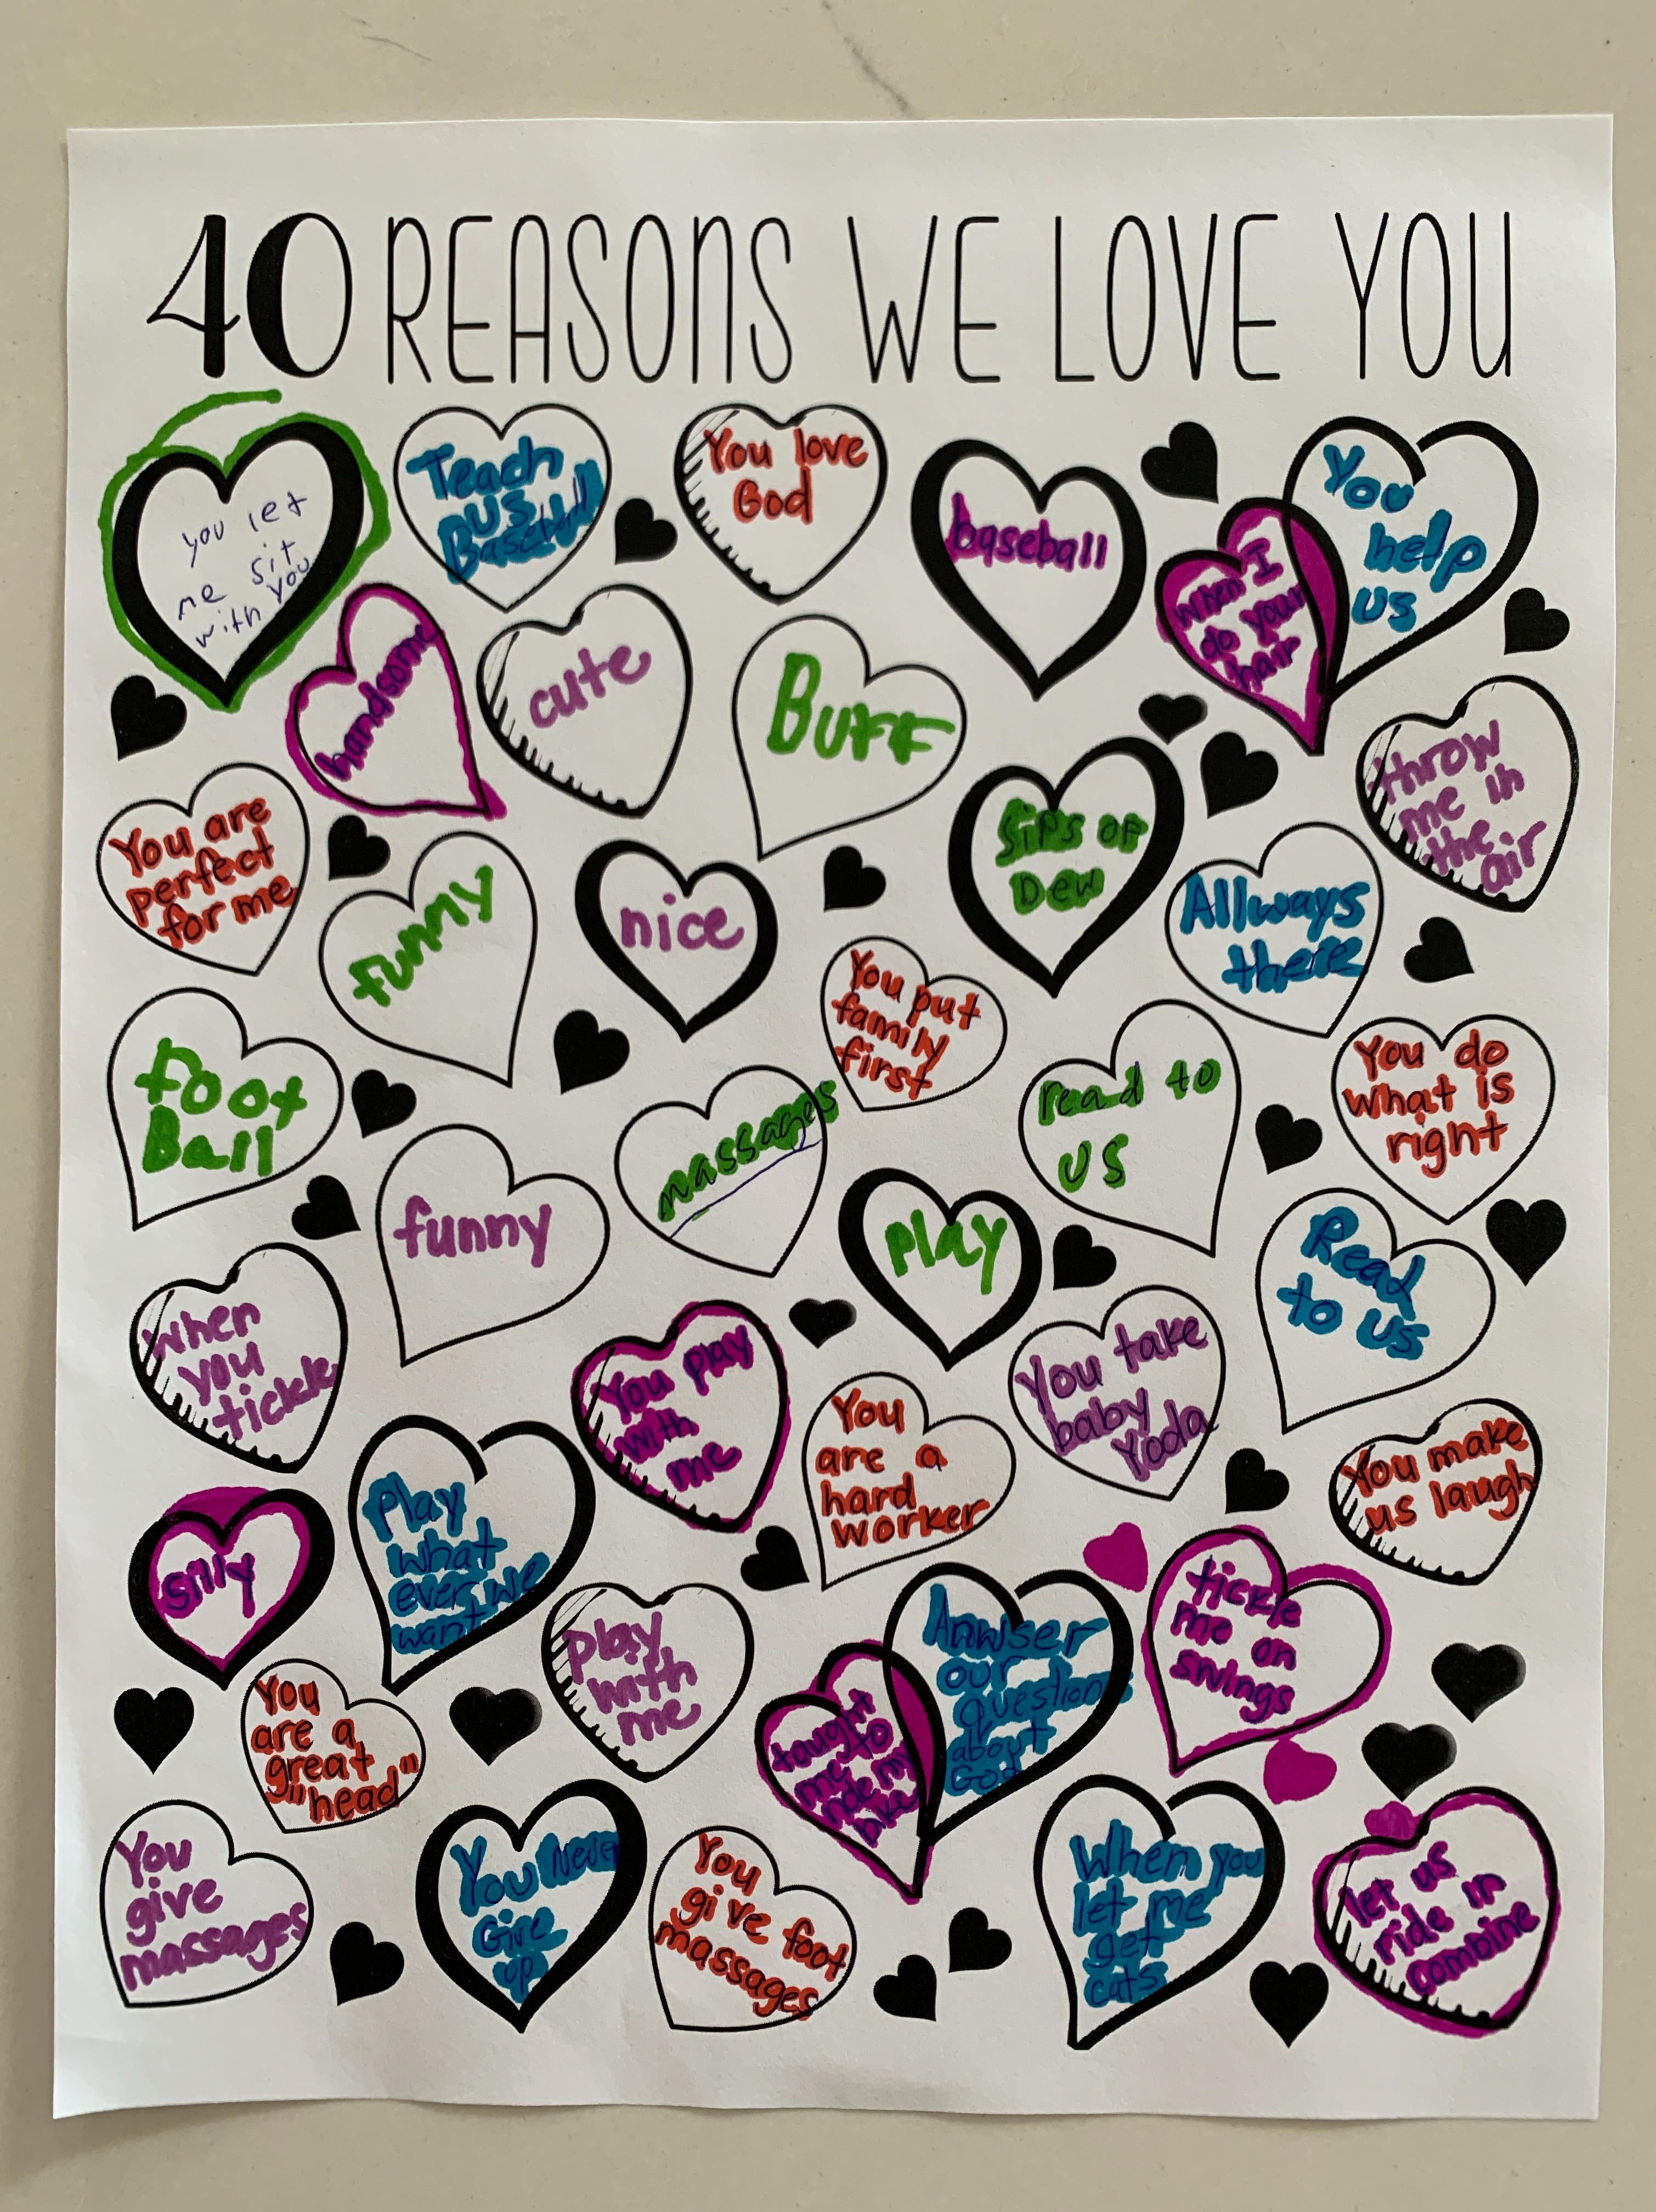 40 REASONS WE LOVE YOU
you let
me sit
with you
Teach
us
Baseball
You love
God
baseball
When I
do your
hair
You
help
us
handsome
cute
Buff
throw
me in
the
air
You are
perfect
for me
funny
nice
Sips of
Dew
Allways
there
You put
family
first
Foot
Ball
massages
read to
us
You do
what is
right
funny
play
Read
to us
when
you
tickle
You play
with
me
You
are a
hard
worker
You take
baby
Yoda
You make
us laugh
silly
Play
what
ever we
want
Play
with
me
taught
me to
ride my
bike
Anwser
our
Questions
about
God
tickle
me on
swings
You
are a
great
"head"
You
give
massages
You Never
Give
up
You
give foot
massages
When you
let me
get
cats
let us
ride in
combine